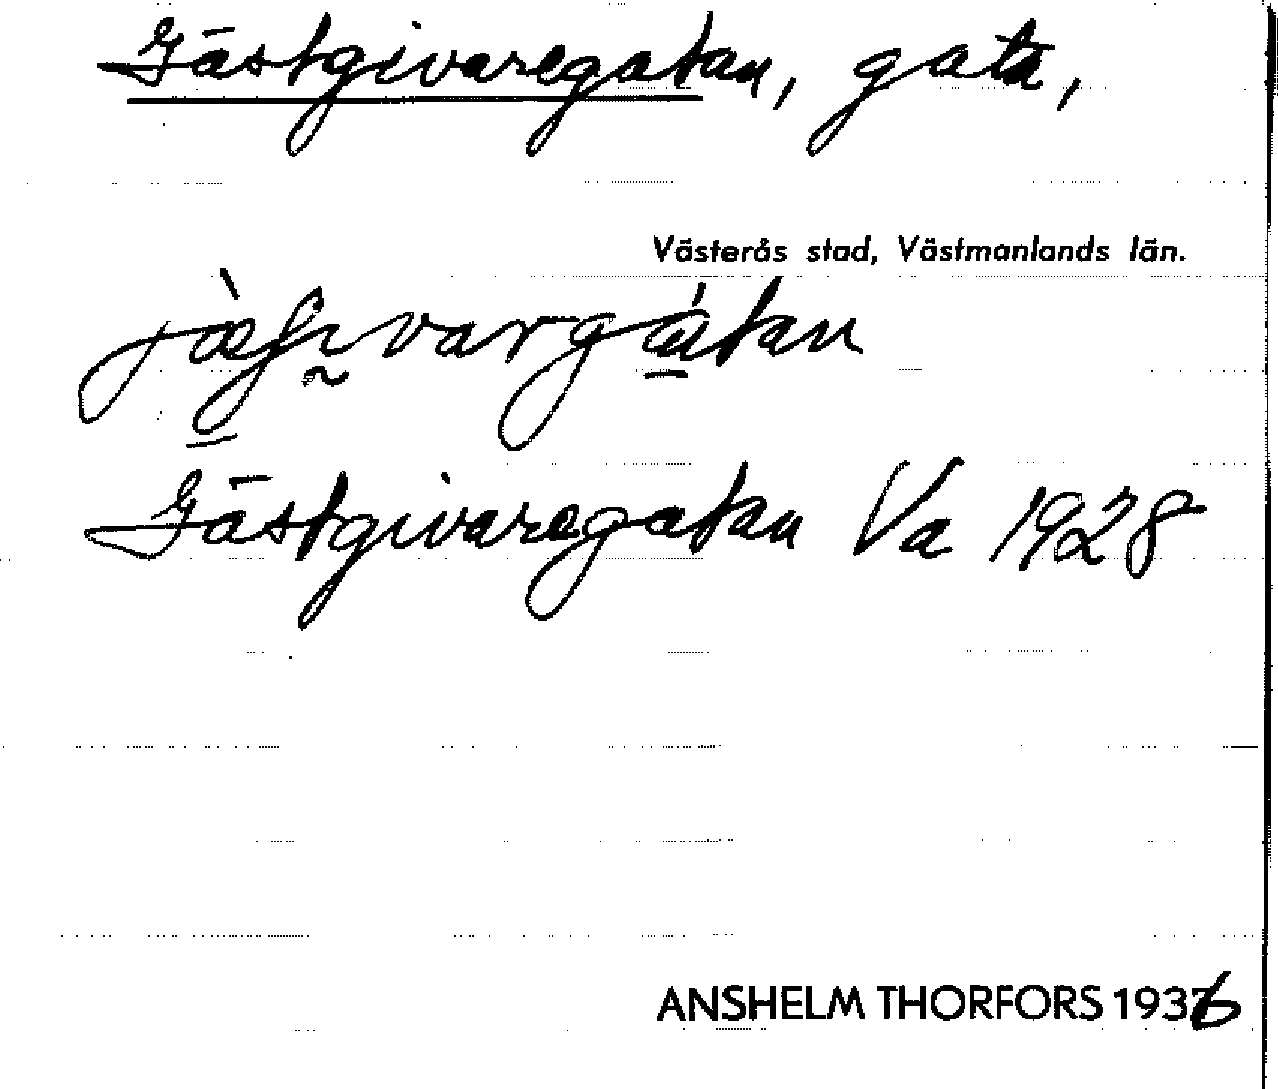 Gästgivaregatan, gata,
Västerås stad, Västmanlands län.
Gästgivaregatan Va 1928
ANSHELM THORFORS 1936